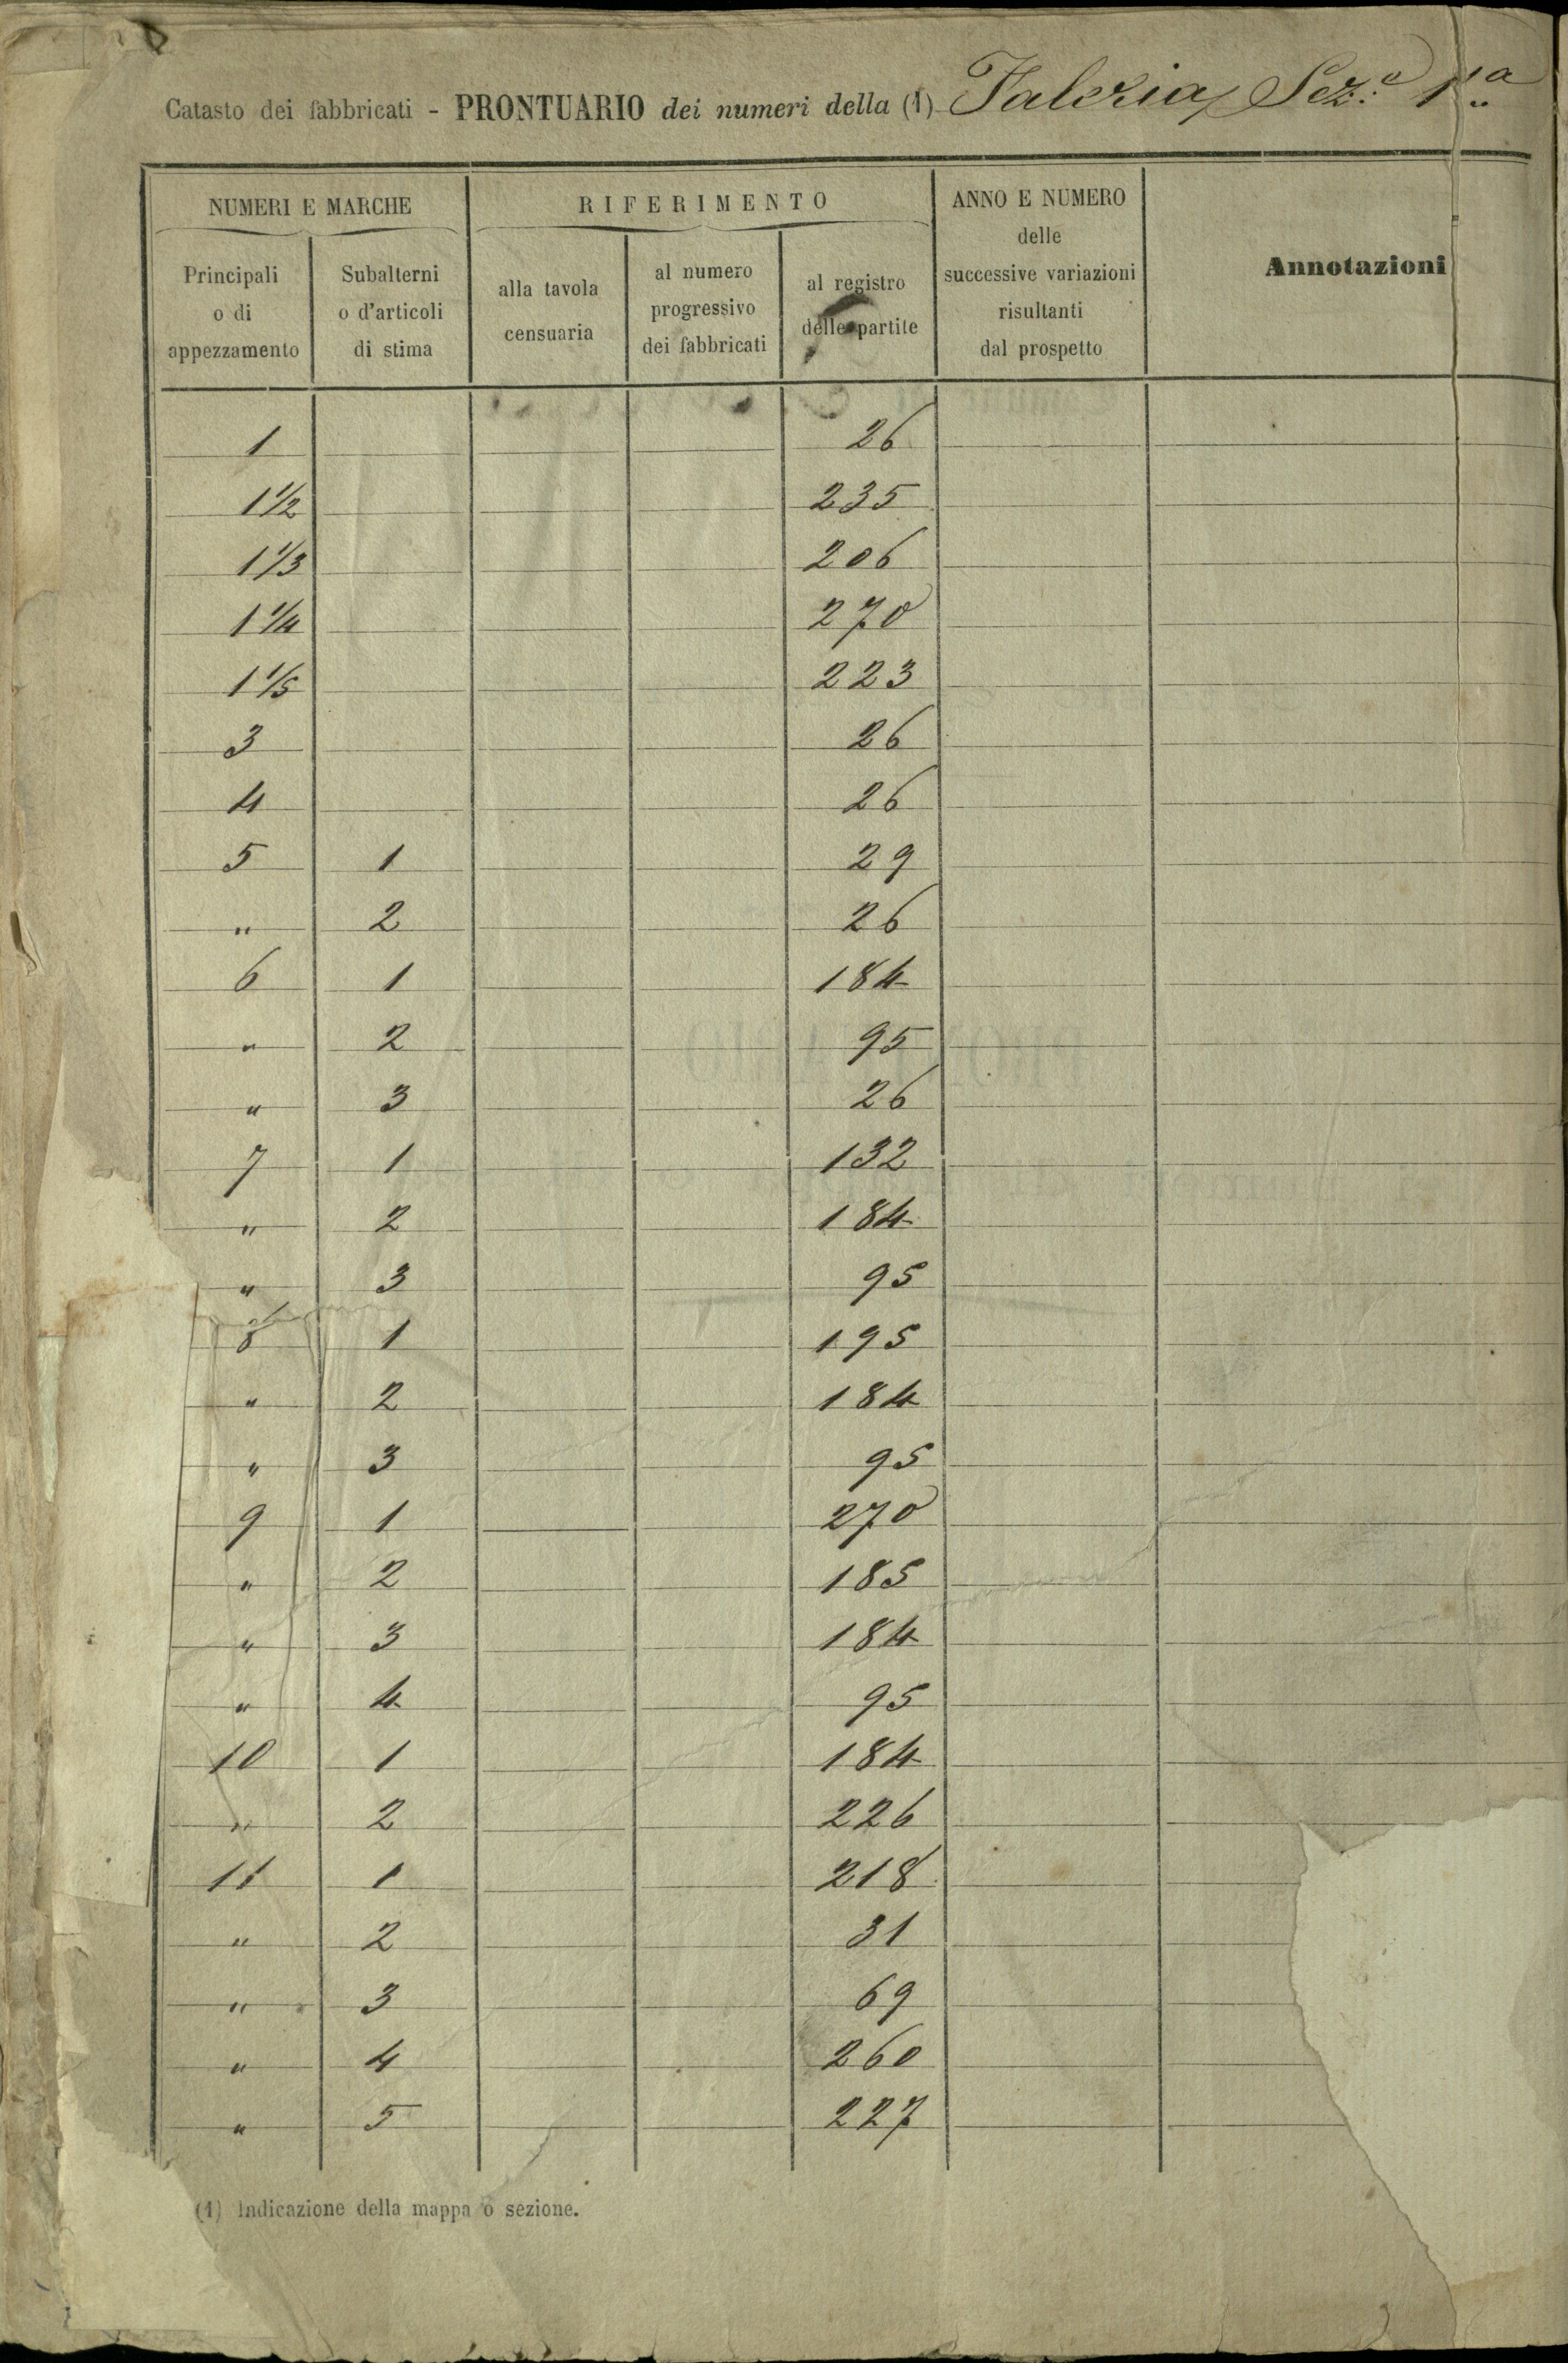 Catasto dei fabbricati - PRONTUARIO dei numeri della (1) Faleria Sez.e 1.a
NUMERI E MARCHE
Principali o di appezzamento
Subalterni o d'articoli di stima
RIFERIMENTO
alla tavola censuaria
al numero progressivo dei fabbricati
al registro delle partite
ANNO E NUMERO delle successive variazioni risultanti dal prospetto
Annotazioni
1 26
1 1/2 235
1 1/3 206
1 1/4 270
1 1/5 223
3 26
4 26
5 1 29
" 2 26
6 1 184
" 2 95
" 3 26
7 1 132
" 2 184
" 3 95
8 1 195
" 2 184
" 3 95
9 1 270
" 2 185
" 3 184
" 4 95
10 1 184
" 2 226
11 1 218
" 2 31
" 3 69
" 4 260
" 5 227
(1) Indicazione della mappa o sezione.